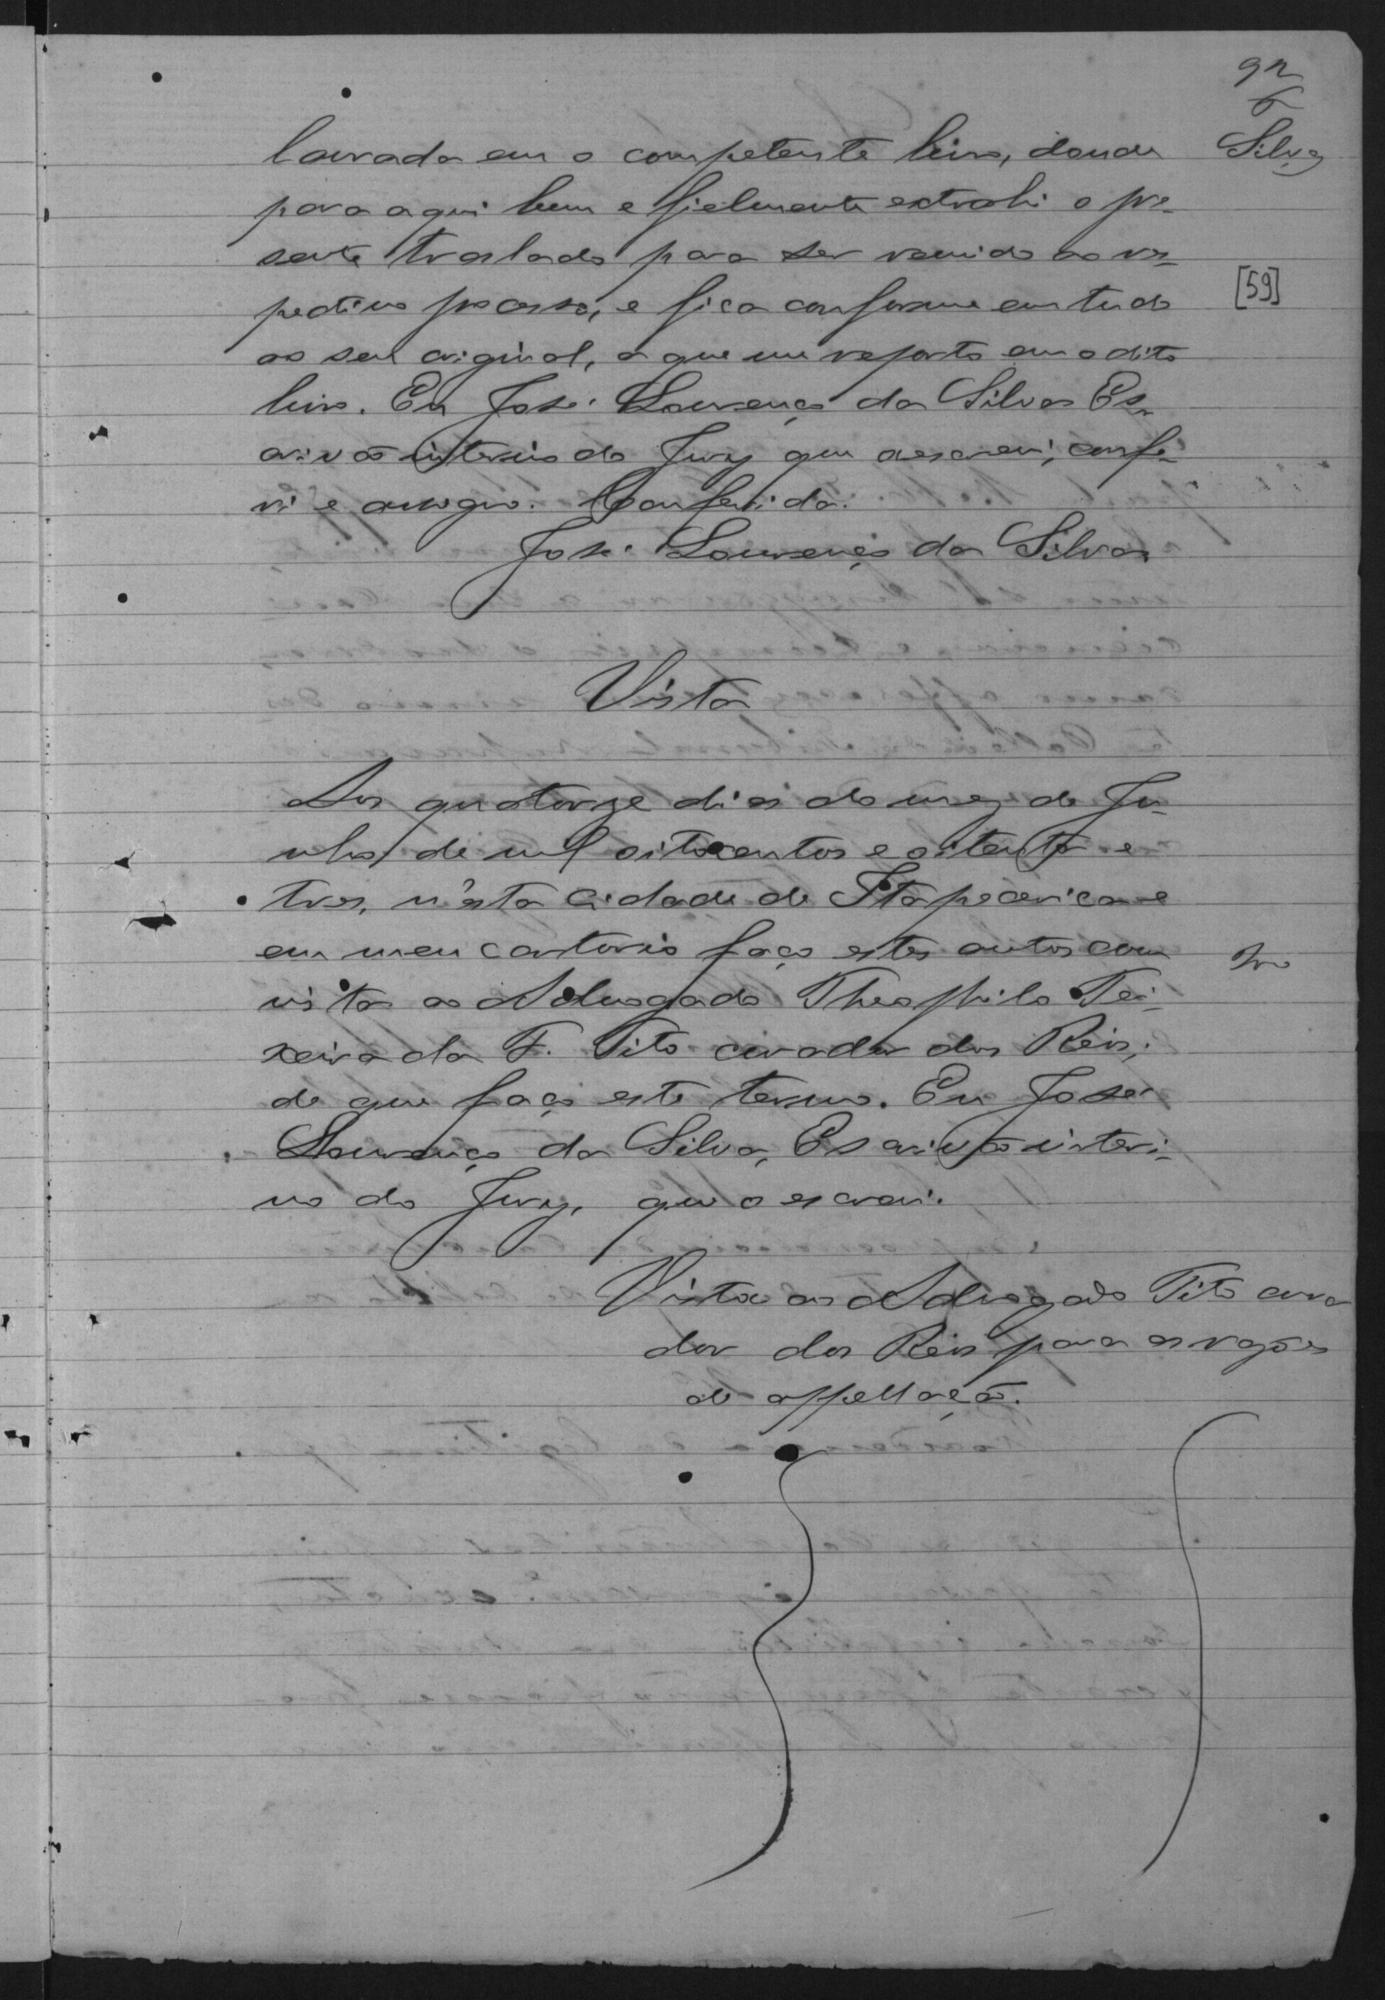 92
Silva
lavrada em o competente livro, donde
para aqui bem e fielmente extrahi o pre-
sente traslado para ser reunido ao res-
pectivo processo, e fica conforme em tudo
[59]
ao seu original, a que me reporto em o dito
livro. Eu José Lourenço da Silva Es-
crivão interino do Jury que o escrevi, confe-
ri e assigno. Conferida.
José Lourenço da Silva
Vista
Aos quatorze dias do mez de Ju-
nho de mil oitocentos e oitenta e
tres, n'esta Cidade de Itapecerica e
em meu cartorio faço estes autos com
vista ao Advogado Theophilo Tei-
xeira da F. Tito curador dos Réos;
de que faço este termo. Eu José
Lourenço da Silva, Escrivão interi-
no do Jury, que o escrevi.
Vista ao Advogado Tito cura
dor dos Réos para as razões
de appellação.